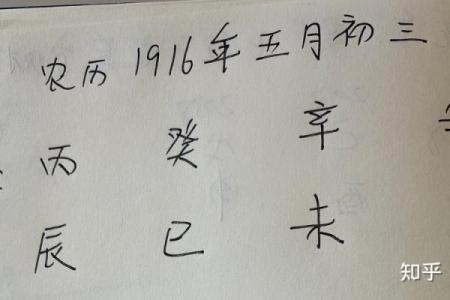 农历1916年五月初三
丙 癸 辛
辰 巳 未
知乎